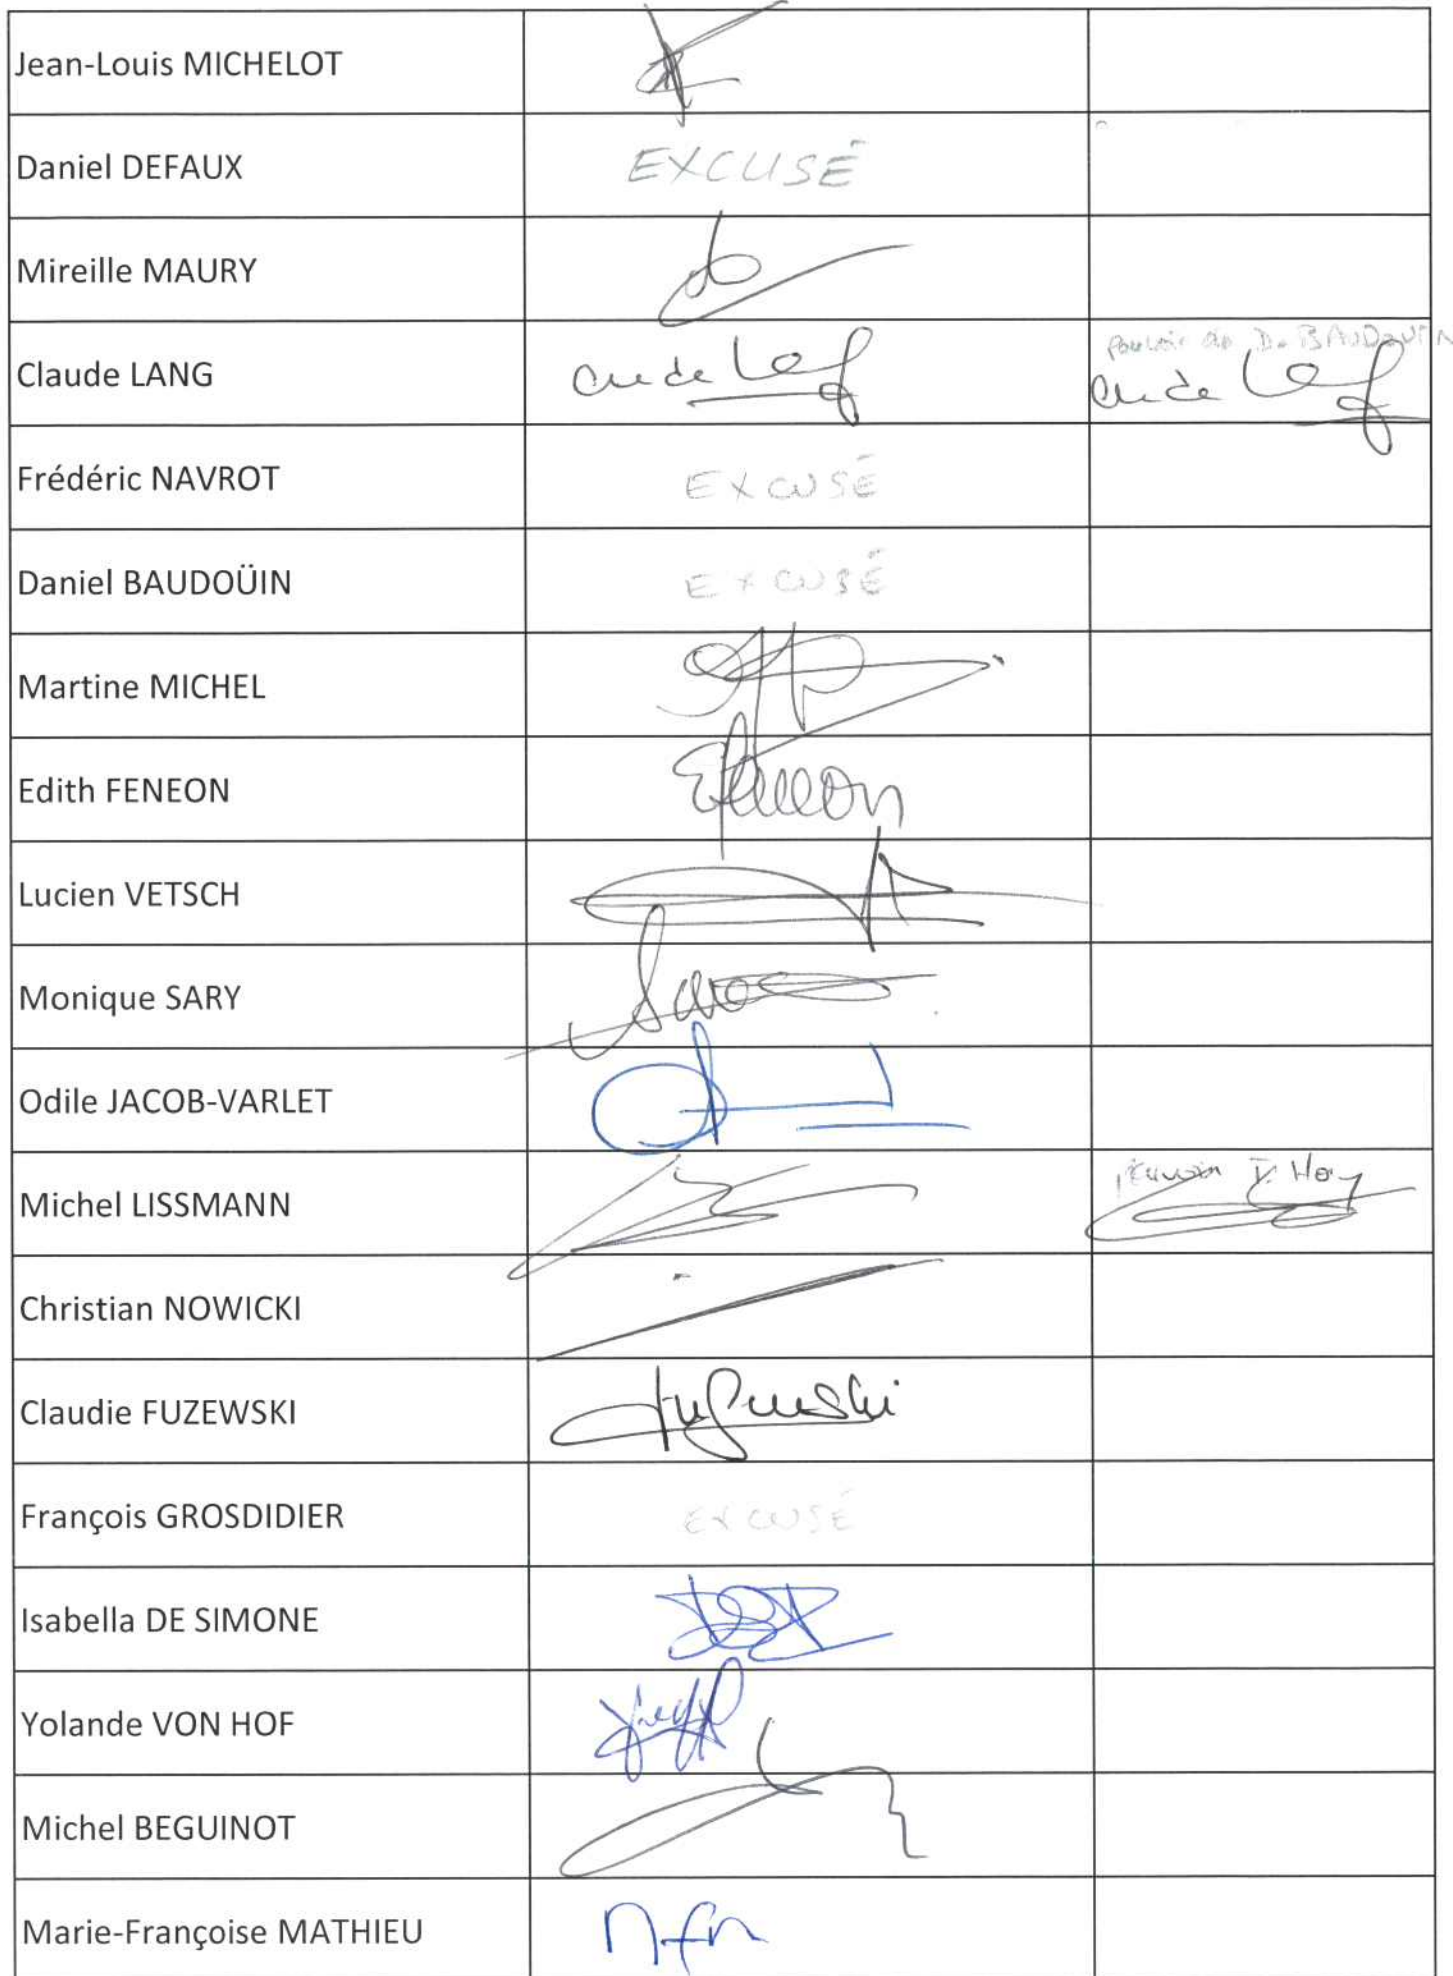 Jean-Louis MICHELOT
Daniel DEFAUX EXCUSÉ
Mireille MAURY
Claude LANG pouvoir de D. BAUDOUIN
Frédéric NAVROT EXCUSÉ
Daniel BAUDOÜIN EXCUSÉ
Martine MICHEL
Edith FENEON EFeneon
Lucien VETSCH
Monique SARY
Odile JACOB-VARLET
Michel LISSMANN pouvoir
Christian NOWICKI
Claudie FUZEWSKI Fuzewski
François GROSDIDIER EXCUSÉ
Isabella DE SIMONE
Yolande VON HOF
Michel BEGUINOT
Marie-Françoise MATHIEU